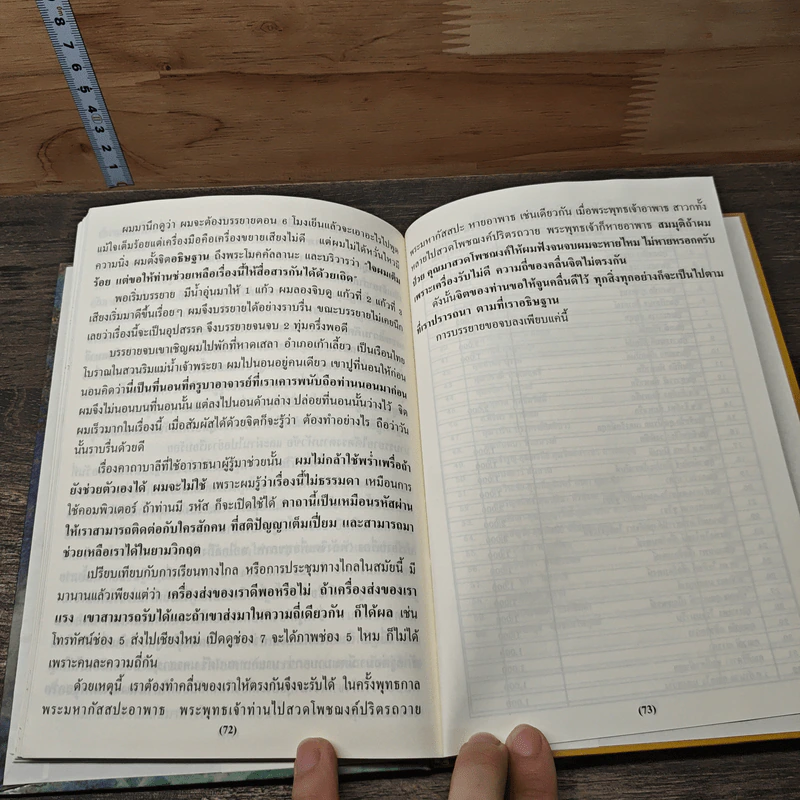 ผมมานึกดูว่า ผมจะต้องบรรยายตอน 6 โมงเย็นแล้วจะเอาอะไรไปพูด
แม้ใจเต็มร้อยแต่เครื่องมือคือเครื่องขยายเสียงไม่ดี แต่ผมไม่ได้หวั่นไหวมี
ความนิ่ง ผมตั้งจิตอธิษฐาน ถึงพระโมคคัลลานะ และบริวารว่า "ใจผมเต็ม
ร้อย แต่ขอให้ท่านช่วยเหลือเรื่องนี้ให้สื่อสารกันได้ด้วยเถิด"
พอเริ่มบรรยาย มีน้ำอุ่นมาให้ 1 แก้ว ผมลองจิบดู แก้วที่ 2 แก้วที่ 3
เสียงเริ่มมาดีขึ้นเรื่อยๆ ผมจึงบรรยายได้อย่างราบรื่น ขณะบรรยายไม่เคยนึก
เลยว่าเรื่องนี้จะเป็นอุปสรรค จึงบรรยายจนจบ 2 ทุ่มครึ่งพอดี
บรรยายจบเขาเชิญผมไปพักที่หาดเสลา อำเภอเก้าเลี้ยว เป็นเรือนไทย
โบราณในสวนริมแม่น้ำเจ้าพระยา ผมไปนอนอยู่คนเดียว เขาปูที่นอนให้ก่อน
นอนคิดว่านี่เป็นที่นอนที่ครูบาอาจารย์ที่เราเคารพนับถือท่านนอนมาก่อน
ผมจึงไม่นอนบนที่นอนนั้น แต่ลงไปนอนด้านล่าง ปล่อยที่นอนนั้นว่างไว้ จิต
ผมเร็วมากในเรื่องนี้ เมื่อสัมผัสได้ด้วยจิตก็จะรู้ว่า ต้องทำอย่างไร ถือว่าวัน
นั้นราบรื่นด้วยดี
เรื่องคาถาบาลีที่ใช้อาราธนาผู้รู้มาช่วยนั้น ผมไม่กล้าใช้พร่ำเพรื่อถ้า
ยังช่วยตัวเองได้ ผมจะไม่ใช้ เพราะผมรู้ว่าเรื่องนี้ไม่ธรรมดา เหมือนการ
ใช้คอมพิวเตอร์ ถ้าท่านมี รหัส ก็จะเปิดใช้ได้ คาถานี้เป็นเหมือนรหัสผ่าน
ให้เราสามารถติดต่อกับใครสักคน ที่สติปัญญาเต็มเปี่ยม และสามารถมา
ช่วยเหลือเราได้ในยามวิกฤต
เปรียบเทียบกับการเรียนทางไกล หรือการประชุมทางไกลในสมัยนี้ มี
มานานแล้วเพียงแต่ว่า เครื่องส่งของเราดีพอหรือไม่ ถ้าเครื่องส่งของเรา
แรง เขาสามารถรับได้และถ้าเขาส่งมาในความถี่เดียวกัน ก็ได้ผล เช่น
โทรทัศน์ช่อง 5 ส่งไปเชียงใหม่ เปิดดูช่อง 7 จะได้ภาพช่อง 5 ไหม ก็ไม่ได้
เพราะคนละความถี่กัน
ด้วยเหตุนี้ เราต้องทำคลื่นของเราให้ตรงกันจึงจะรับได้ ในครั้งพุทธกาล
พระมหากัสสปะอาพาธ พระพุทธเจ้าท่านไปสวดโพชฌงค์ปริตรถวาย
(72)
พระมหากัสสปะ หายอาพาธ เช่นเดียวกัน เมื่อพระพุทธเจ้าอาพาธ สาวกทั้ง
หลายไปสวดโพชฌงค์ปริตรถวาย พระพุทธเจ้าก็หายอาพาธ สมมุติถ้าผม
ป่วย คุณมาสวดโพชฌงค์ให้ผมฟังจนจบผมจะหายไหม ไม่หายหรอกครับ
เพราะเครื่องรับไม่ดี ความถี่ของคลื่นจิตไม่ตรงกัน
ดังนั้นจิตของท่านขอให้จูนคลื่นดีไว้ ทุกสิ่งทุกอย่างก็จะเป็นไปตาม
ที่เราปรารถนา ตามที่เราอธิษฐาน
การบรรยายขอจบลงเพียบแค่นี้
(73)
8
7
6
5
4
3
2
1